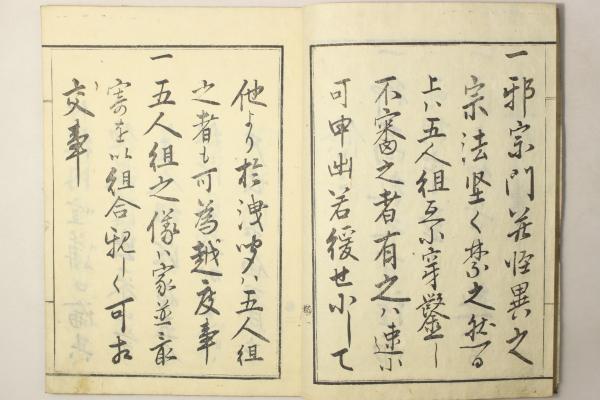 一邪宗門并怪異之
宗法堅く禁之然る
上ハ五人組互ニ穿鑿し
不審之者有之ハ速ニ
可申出若緩せにして
他より於洩聞ハ五人組
之者も可為越度事
一五人組之儀ハ家並最
寄を以組合親しく可相
交事